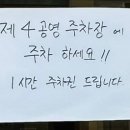 제 4 공영 주차장 에
주차 하세요 !!
1 시간 주차권 드립니다